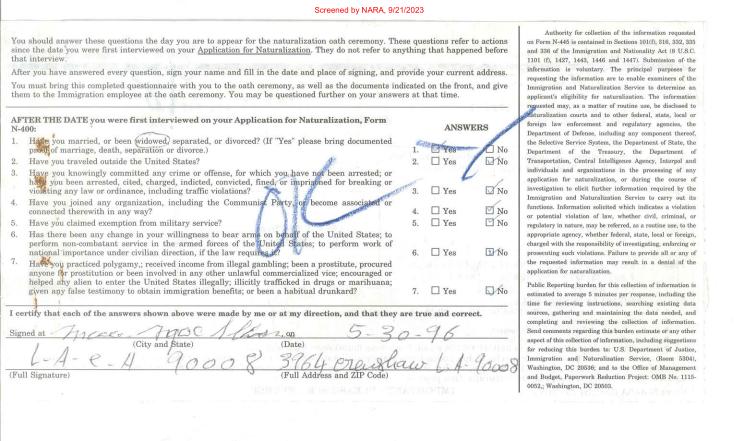 Screened by NARA, 9/21/2023
You should answer these questions the day you are to appear for the naturalization oath ceremony. These questions refer to actions
since the date you were first interviewed on your Application for Naturalization. They do not refer to anything that happened before
that interview.
After you have answered every question, sign your name and fill in the date and place of signing, and provide your current address.
You must bring this completed questionnaire with you to the oath ceremony, as well as the documents indicated on the front, and give
them to the Immigration employee at the oath ceremony. You may be questioned further on your answers at that time.
AFTER THE DATE you were first interviewed on your Application for Naturalization, Form
N-400:
ANSWERS
1. Have you married, or been widowed, separated, or divorced? (If "Yes" please bring documented
proof of marriage, death, separation or divorce.)
1. Yes No
2. Have you traveled outside the United States?
2. Yes No
3. Have you knowingly committed any crime or offense, for which you have not been arrested; or
have you been arrested, cited, charged, indicted, convicted, fined, or imprisoned for breaking or
violating any law or ordinance, including traffic violations?
3. Yes No
4. Have you joined any organization, including the Communist Party, or become associated or
connected therewith in any way?
4. Yes No
5. Have you claimed exemption from military service?
5. Yes No
6. Has there been any change in your willingness to bear arms on behalf of the United States; to
perform non-combatant service in the armed forces of the United States; to perform work of
national importance under civilian direction, if the law requires it?
6. Yes No
7. Have you practiced polygamy,; received income from illegal gambling; been a prostitute, procured
anyone for prostitution or been involved in any other unlawful commercialized vice; encouraged or
helped any alien to enter the United States illegally; illicitly trafficked in drugs or marihuana;
given any false testimony to obtain immigration benefits; or been a habitual drunkard?
7. Yes No
OK
I certify that each of the answers shown above were made by me or at my direction, and that they are true and correct.
Signed at on 5-30-96
(City and State) (Date)
L-A-C-A 90008 3964 Crenshaw L.A-90008
(Full Signature) (Full Address and ZIP Code)
Authority for collection of the information requested
on Form N-445 is contained in Sections 101(f), 316, 332, 335
and 336 of the Immigration and Nationality Act (8 U.S.C.
1101 (f), 1427, 1443, 1446 and 1447). Submission of the
information is voluntary. The principal purposes for
requesting the information are to enable examiners of the
Immigration and Naturalization Service to determine an
applicant's eligibility for naturalization. The information
requested may, as a matter of routine use, be disclosed to
naturalization courts and to other federal, state, local or
foreign law enforcement and regulatory agencies, the
Department of Defense, including any component thereof,
the Selective Service System, the Department of State, the
Department of the Treasury, the Department of
Transportation, Central Intelligence Agency, Interpol and
individuals and organizations in the processing of any
application for naturalization, or during the course of
investigation to elicit further information required by the
Immigration and Naturalization Service to carry out its
functions. Information solicited which indicates a violation
or potential violation of law, whether civil, criminal, or
regulatory in nature, may be referred, as a routine use, to the
appropriate agency, whether federal, state, local or foreign,
charged with the responsibility of investigating, enforcing or
prosecuting such violations. Failure to provide all or any of
the requested information may result in a denial of the
application for naturalization.
Public Reporting burden for this collection of information is
estimated to average 5 minutes per response, including the
time for reviewing instructions, searching existing data
sources, gathering and maintaining the data needed, and
completing and reviewing the collection of information.
Send comments regarding this burden estimate or any other
aspect of this collection of information, including suggestions
for reducing this burden to: U.S. Department of Justice,
Immigration and Naturalization Service, (Room 5304),
Washington, DC 20536; and to the Office of Management
and Budget, Paperwork Reduction Project: OMB No. 1115-
0052,; Washington, DC 20503.